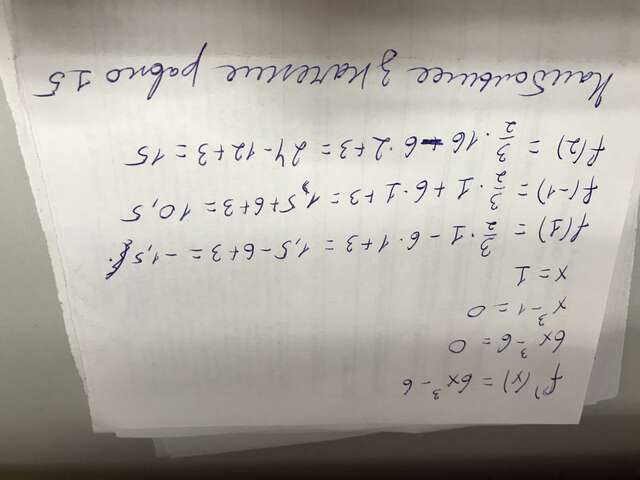 f'(x) = 6x³ - 6
6x³ - 6 = 0
x³ - 1 = 0
x = 1
f(1) = 3/2 · 1 - 6 · 1 + 3 = 1,5 - 6 + 3 = -1,5
f(-1) = 3/2 · 1 + 6 · 1 + 3 = 1,5 + 6 + 3 = 10,5
f(2) = 3/2 · 16 - 6 · 2 + 3 = 24 - 12 + 3 = 15
Наибольшее значение равно 15